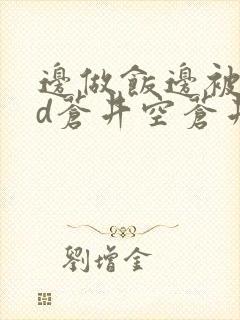 邊做飯邊被
d蒼井空蒼井
劉增金